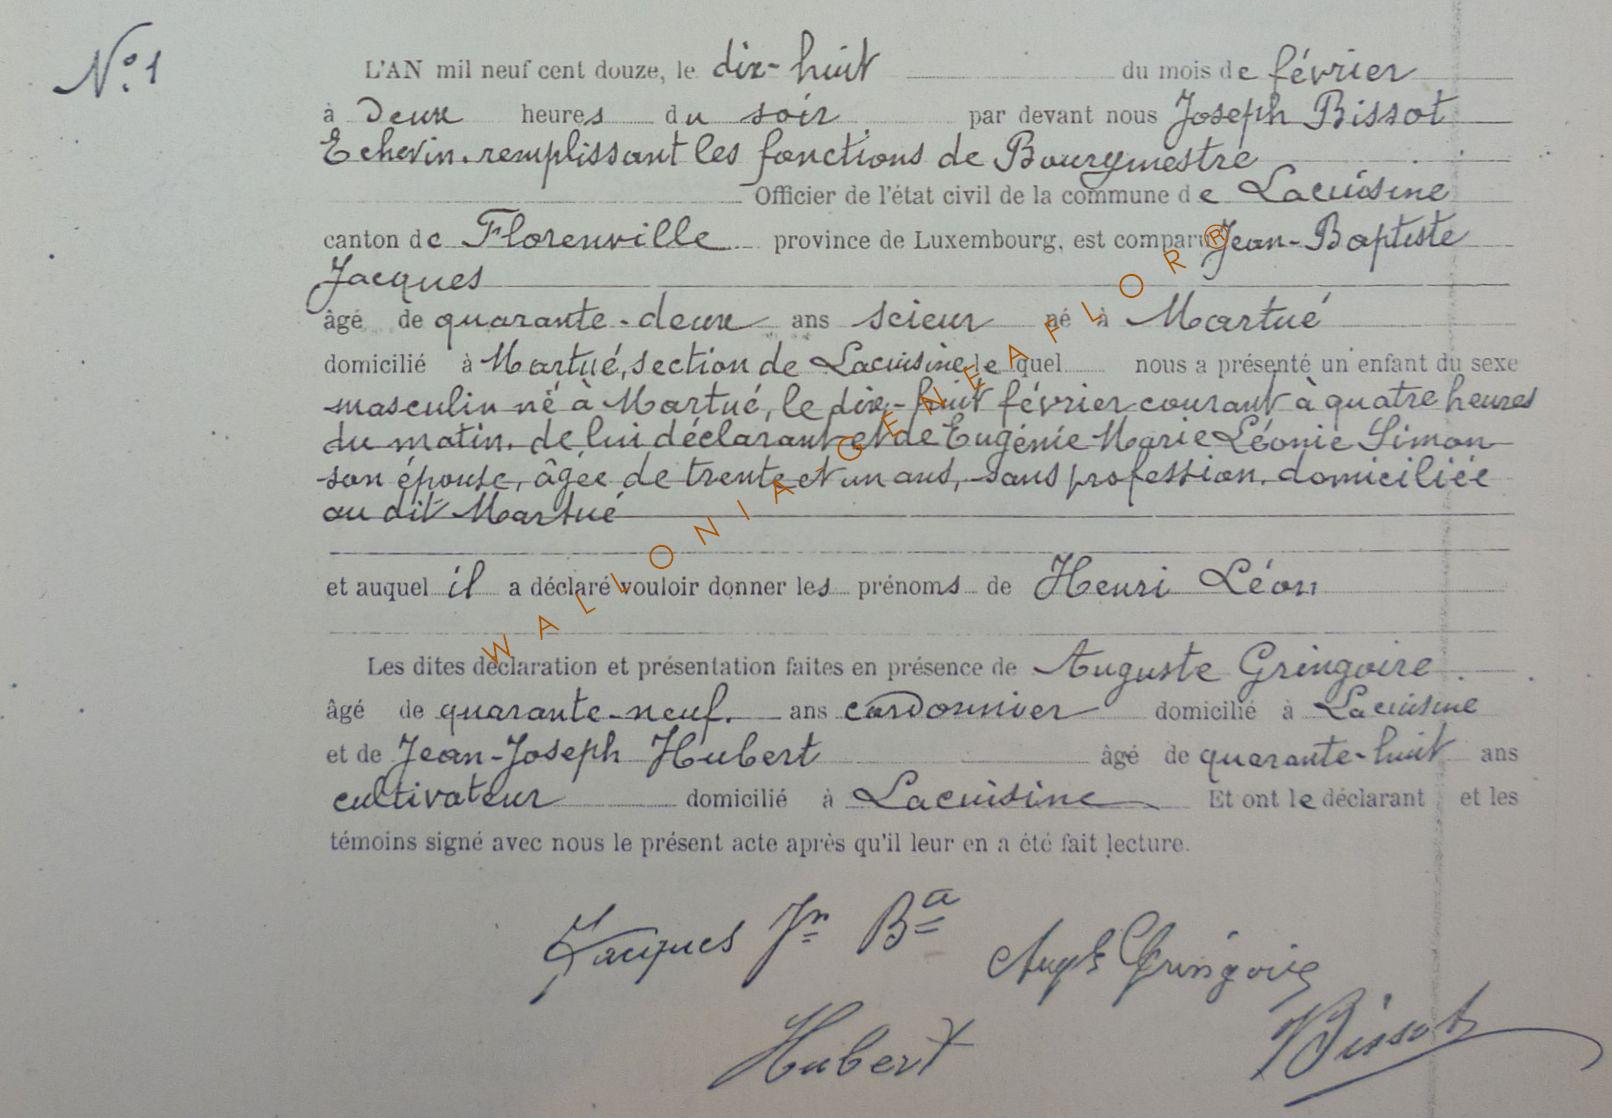 N° 1
L'AN mil neuf cent douze, le dix-huit du mois de février
à deux heures du soir par devant nous Joseph Bissot
Echevin remplissant les fonctions de Bourgmestre
Officier de l'état civil de la commune de Lacuisine
canton de Florenville province de Luxembourg, est comparu Jean-Baptiste
Jacques
âgé de quarante-deux ans scieur né à Martué
domicilié à Martué, section de Lacuisine lequel nous a présenté un enfant du sexe
masculin né à Martué, le dix-huit février courant à quatre heures
du matin, de lui déclarant et de Eugénie Marie Léonie Simon
son épouse, âgée de trente et un ans, sans profession, domiciliée
au dit Martué
et auquel il a déclaré vouloir donner les prénoms de Henri Léon
Les dites déclaration et présentation faites en présence de Auguste Gringoire
âgé de quarante-neuf ans cordonnier domicilié à Lacuisine
et de Jean-Joseph Hubert âgé de quarante-huit ans
cultivateur domicilié à Lacuisine Et ont le déclarant et les
témoins signé avec nous le présent acte après qu'il leur en a été fait lecture.
Jacques Jn Ba
Augte Gringoire
Hubert
JBissot
WALLONIA-GENEAFLOR®